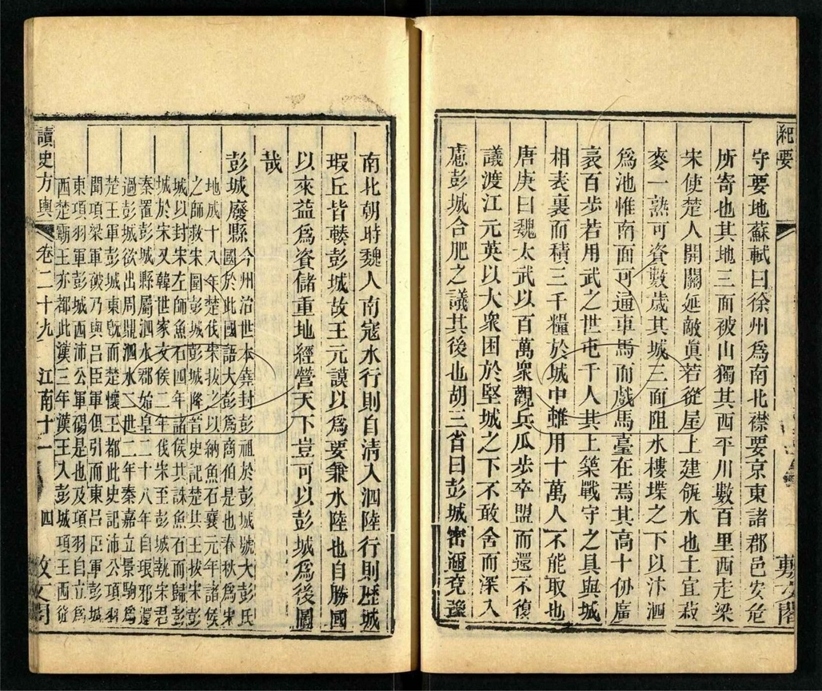 紀要
敷文閣
守要地蘇軾曰徐州爲南北襟要京東諸郡邑安危
所寄也其地三面被山獨其西平川數百里西走梁
宋使楚人開關延敵眞若從屋上建瓴水也土宜菽
麥一熟可資數歲其城三面阻水樓堞之下以汴泗
爲池惟南面可通車馬而戲馬臺在焉其高十仞廣
袤百步若用武之世屯千人其上築戰守之具與城
相表裏而積三千糧於城中雖用十萬人不能取也
唐庚曰魏太武以百萬衆觀兵瓜步卒盟而還不復
議渡江元英以大衆困於堅城之下不敢舍而深入
慮彭城合肥之議其後也胡三省曰彭城密邇兗豫
南北朝時魏人南寇水行則自清入泗陸行則歷城
瑕丘皆輳彭城故王元謨以爲要兼水陸也自勝國
以來益爲資儲重地經營天下豈可以彭城爲後圖
哉
彭城廢縣今州治世本堯封彭祖於彭城號大彭氏
國於此國語大彭爲商伯是也春秋爲宋
地成十八年楚伐宋拔之以納魚石襄元年諸侯
之師救宋圍彭城彭城降晉史記楚共王拔宋彭
城以封宋左師魚石四年諸侯共誅魚石而歸彭
城於宋又韓世家文侯二年伐宋王彭城執宋君
秦置彭城縣屬泗水郡始皇二十八年自琅邪還
過彭城欲出周鼎泗水二世二年秦嘉立景駒爲
楚王軍彭城東旣而楚懷王都此史記沛公項羽
聞項梁軍破乃與呂臣軍俱引而東呂臣軍彭城
東項羽軍彭城西沛公軍碭是也及項羽自立爲
西楚霸王亦都此漢三年漢王入彭城項王西從
讀史方輿
卷二十九
江南十一
四
敷文閣